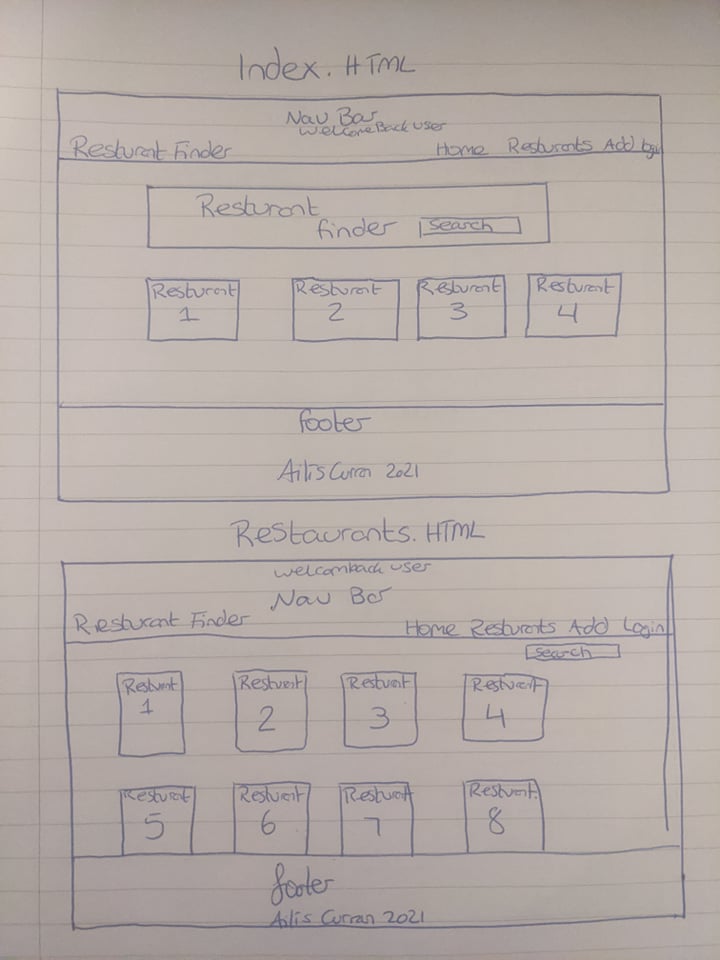 Index. HTML
Nav Bar
Welcome Back user
Resturant Finder Home Resturants Add login
Resturant
finder search
Resturant Resturant Resturant Resturant
1 2 3 4
footer
Ailis Curran 2021
Restaurants. HTML
welcomback user
Nav Bar
Resturant Finder Home Resturants Add Login
search
Resturant Resturant Resturant Resturant
1 2 3 4
Resturant Resturant Resturant Resturant
5 6 7 8
footer
Ailis Curran 2021